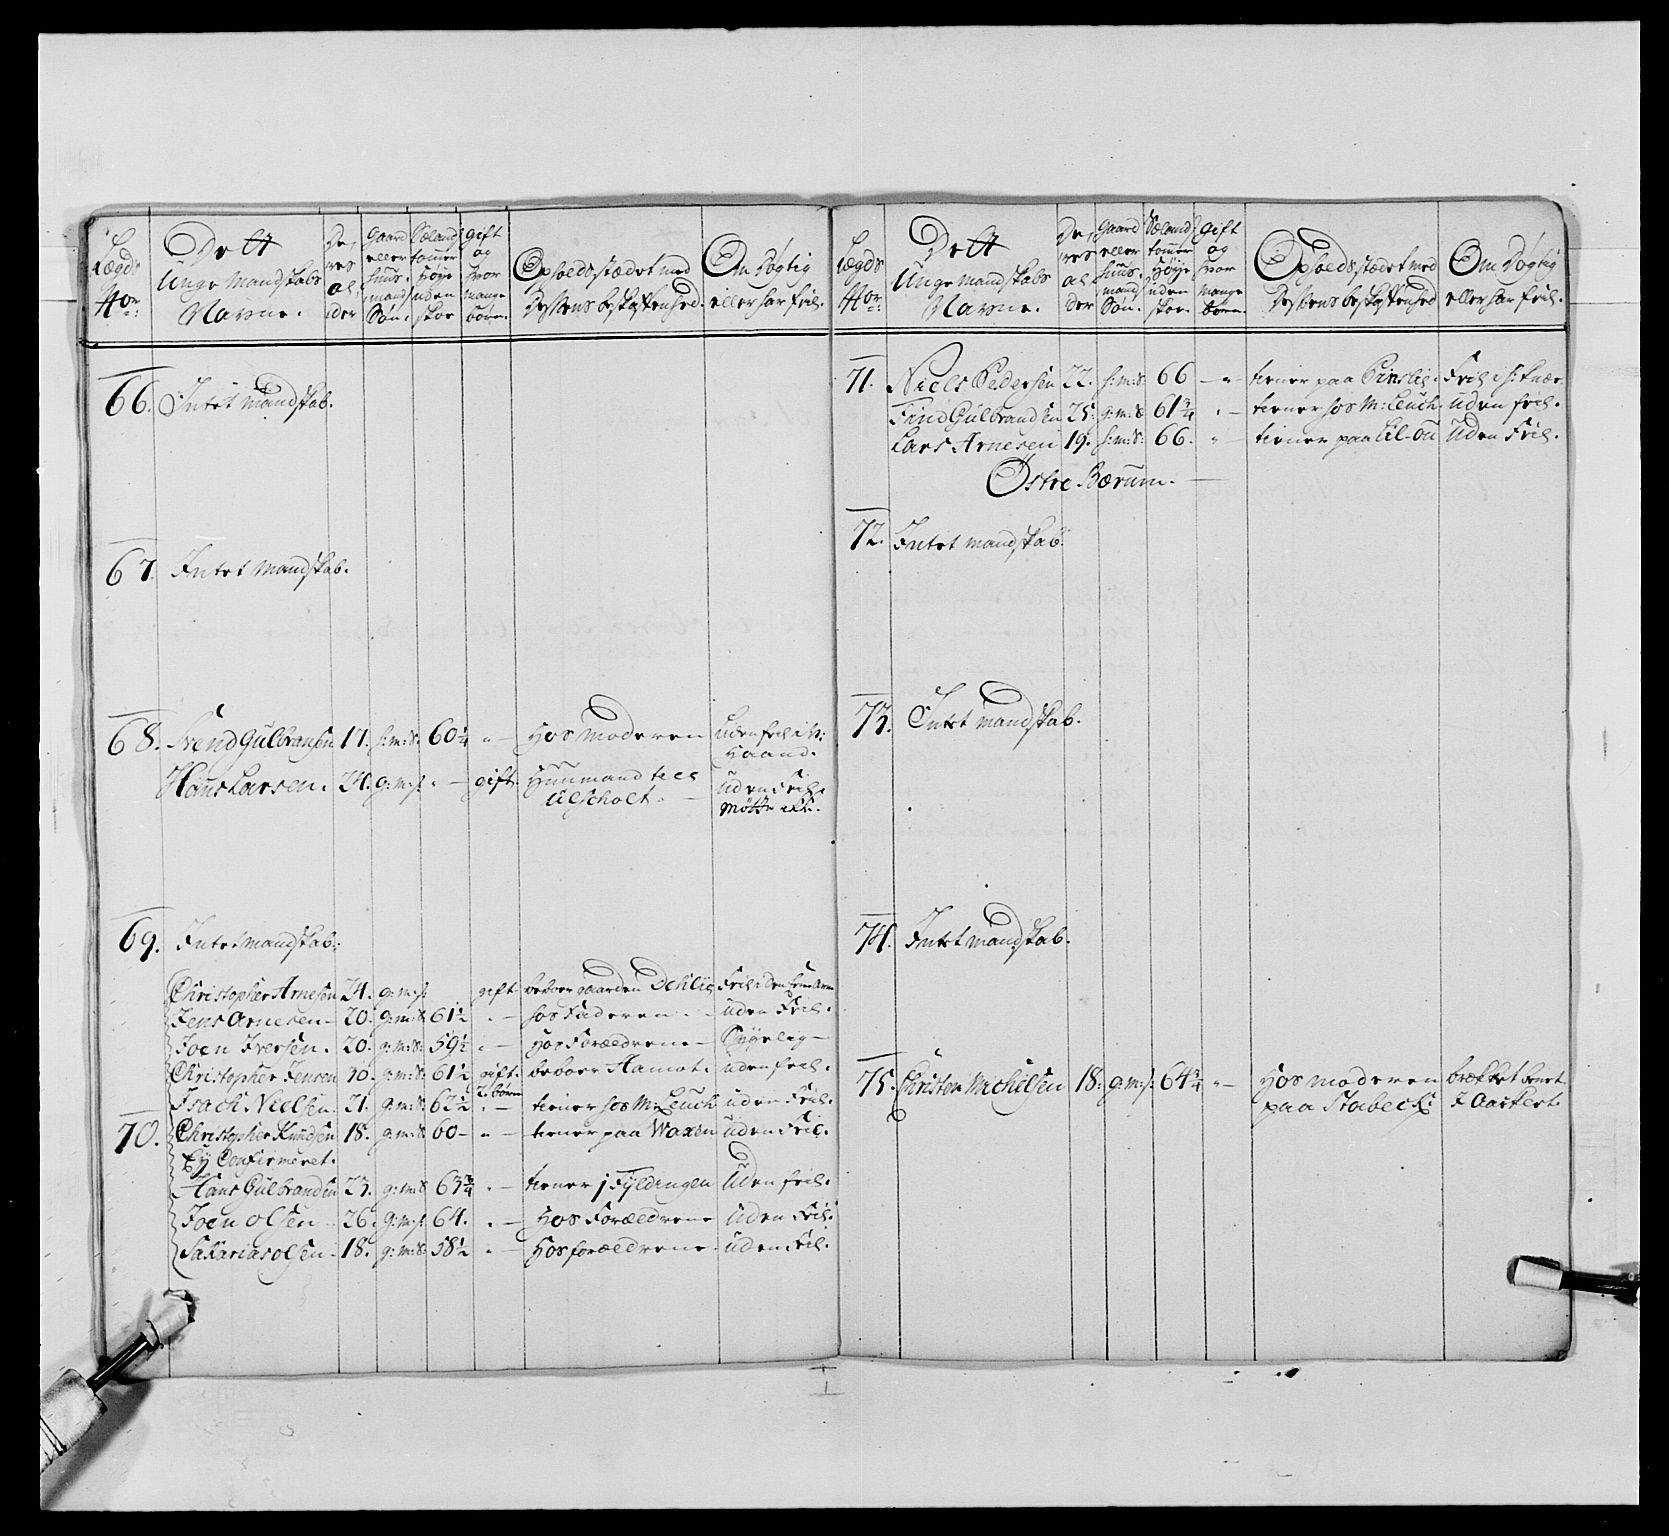 Lægds No:
Dett Unge Mandskabs Navne.
Deres alder
Gaard eller huus mand Søn.
Sæland tommer Høye uden skoe
gift og hvor mange børn.
Opholds stædet med Dessens beskaffenhed.
Om døgtig eller har feil.
66. Intet mandskab.
67. Intet mandskab.
68. Svend Gulbransen 17. h:m:S: 60 1/4 " — Hos moderen Uden feil i h: Haand.
Hans Larsen. 24. g:m:s: " — gift. Huusmand til Ulscholt. — Uden Feil. Møtte ikke.
69. Intet mandskab.
Christopher Arnesen 24. g:m:s: gift beboer gaarden Dehlie Feil i den
Jens Arnesen — 20. g:m:S: 61 1/2 " — hos Faderen. — uden Feil.
Joen Iversen. 20. g:m:S: 59 1/2 " — Hos Forældrene — Sÿgelig —
Christopher Jensen 30. g:m:S: 61 1/2 gift. 2 børn beboer Hamot. uden feil.
Isach Nielsen. 21. g:m:S: 62 1/2 " — tiener hos M: Leuch uden Feil.
70. Christopher Knudsen 18. g:m:S: 60 — " — tiener paa Woxen uden Feil.
Ey Confirmeret.
Hans Gulbrandsen 23. g:m:S: 63 3/4 " — tiener i Fÿldingen Uden feil.
Joen olsen — 26. g:m:s: 64. " — Hos Forældrene Uden Feil.
Sakarias olsen. 18. g:m:S: 58 1/2 " — Hos forældrene. uden Feil.
Lægds No:
Dett Unge Mandskabs Navne.
Deres alder
Gaard eller huus mand Søn.
Sæland tommer Høye uden skoe.
gift og hvor mange børn.
Opholds stædet med Dessens beskaffenhed
Om døgtig eller har feil.
71. Niels Pedersen 22. h:m:S: 66 — " — tiener paa Feil i
Find Gulbrandsen 25. g:m:S 61 3/4 " — tiener hos M: Leuch. uden feil.
Lars Arnesen 19. h:m:S: 66. " — tiener paa Lil-øu Uden Feil.
Østre Bærum. —
72. Intet mandskab.
73. Intet mandskab.
74. Intet mandskab.
75. Christen Michelsen 18: g:m:s: 64 3/4 " — Hos moderen paa Stabeck: brækket benet